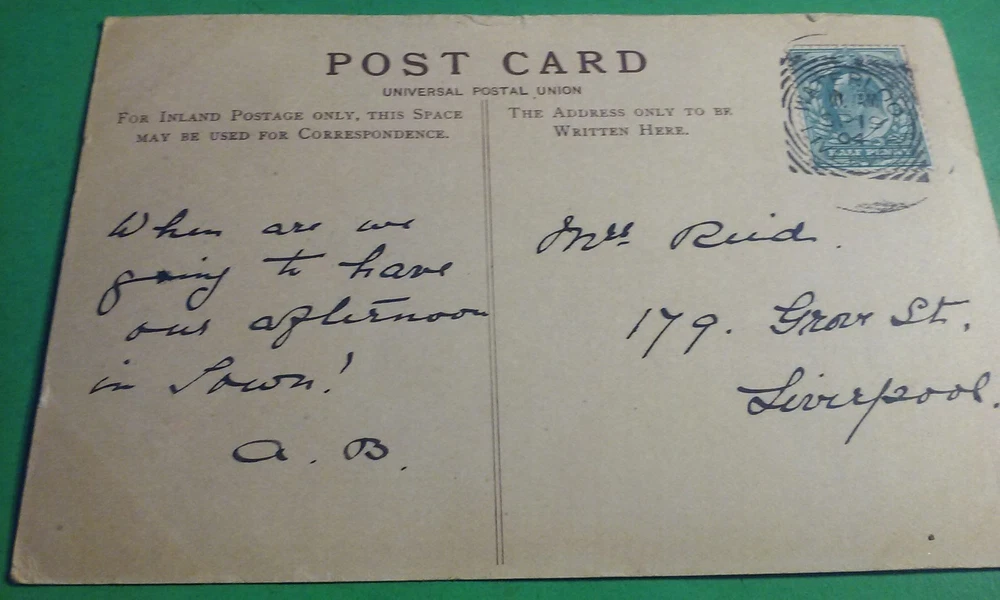 POST CARD
UNIVERSAL POSTAL UNION
FOR INLAND POSTAGE ONLY, THIS SPACE
MAY BE USED FOR CORRESPONDENCE.
THE ADDRESS ONLY TO BE
WRITTEN HERE.
When are we
going to have
our afternoon
in Town!
A. B.
Mrs Reid.
179. Grove St.
Liverpool.